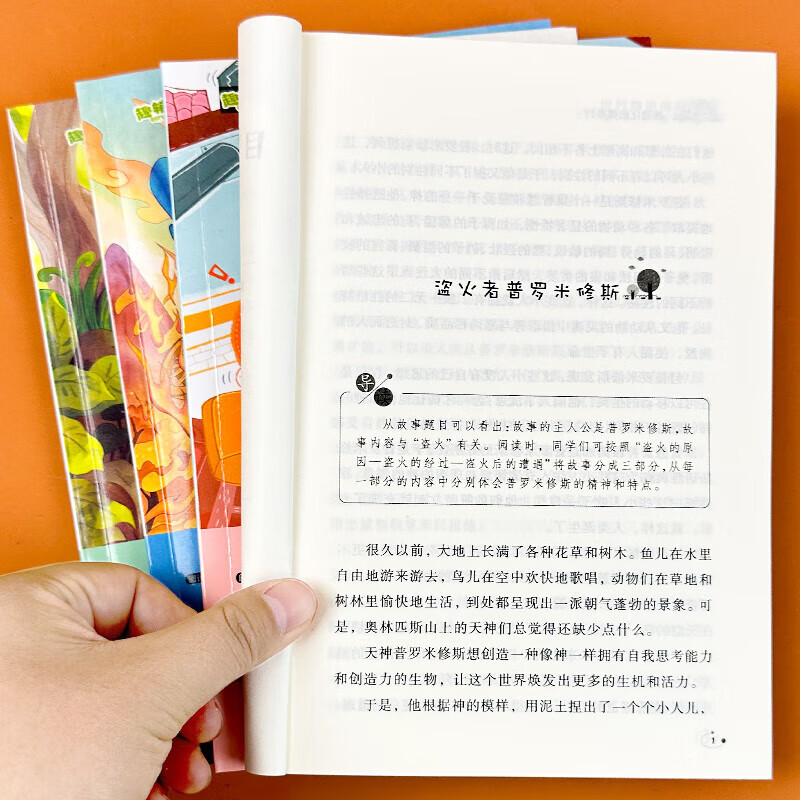 盗火者普罗米修斯
导
从故事题目可以看出：故事的主人公是普罗米修斯，故
事内容与“盗火”有关。阅读时，同学们可按照“盗火的原
因—盗火的经过—盗火后的遭遇”将故事分成三部分，从每
一部分的内容中分别体会普罗米修斯的精神和特点。
很久以前，大地上长满了各种花草和树木。鱼儿在水里
自由地游来游去，鸟儿在空中欢快地歌唱，动物们在草地和
树林里愉快地生活，到处都呈现出一派朝气蓬勃的景象。可
是，奥林匹斯山上的天神们总觉得还缺少点什么。
天神普罗米修斯想创造一种像神一样拥有自我思考能力
和创造力的生物，让这个世界焕发出更多的生机和活力。
于是，他根据神的模样，用泥土捏出了一个个小人儿、
1